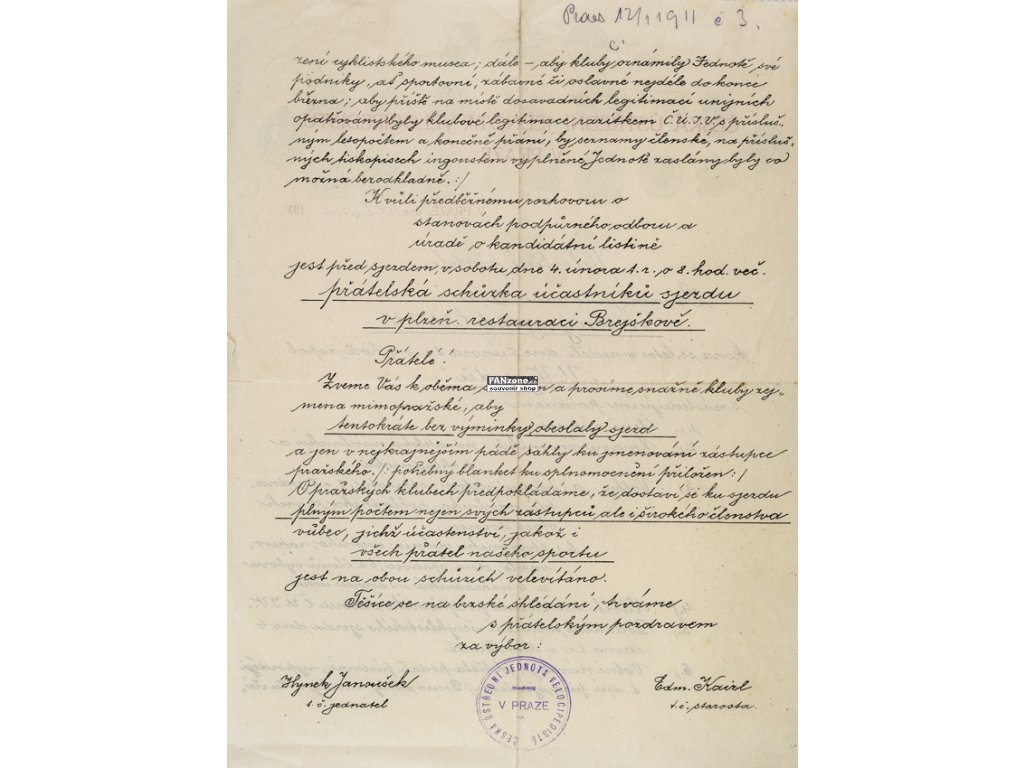 Praes 12/1 1911 č 3.
zení cyklistského musea; dále – aby kluby oznámily Jednotě své
podniky, ať sportovní, zábavné či oslavné nejdéle do konce
března; aby příště na místě dosavadních legitimací unijních
opatřovány byly klubové legitimace razítkem Č.Ú.J.V. s přísluš-
ným letopočtem a konečně přání, by seznamy členské, na přísluš-
ných tiskopisech ingoustem vyplněné, Jednotě zaslány byly co
možná bezodkladně.:/
K vůli předběžnému rozhovoru o
stanovách podpůrného odboru a
úradě o kandidátní listině
jest před sjezdem, v sobotu dne 4. února t.r. o 8. hod. več.
přátelská schůzka účastníků sjezdu
v plzeň. restauraci Brejškově.
Přátelé!
Zveme Vás k oběma a prosíme snažně kluby zej-
mena mimopražské, aby
FANzone.cz
souvenir shop
tentokráte bez výminky obeslaly sjezd
a jen v nejkrajnějším pádě sáhly ku jmenování zástupce
pražského. /: potřebný blanket ku splnomocnění přiložen :/
O pražských klubech předpokládáme, že dostaví se ku sjezdu
plným počtem nejen svých zástupců, ale i širokého členstva
vůbec, jichž účastenství, jakož i
všech přátel našeho sportu
jest na obou schůzích velevítáno.
Těšíce se na brzské shledání, trváme
s přátelským pozdravem
za výbor:
Hynek Janoušek
t.č. jednatel
ČESKÁ ÚSTŘEDNÍ JEDNOTA VELOCIPEDISTŮ
V PRAZE
Edm. Kaizl
t.č. starosta.